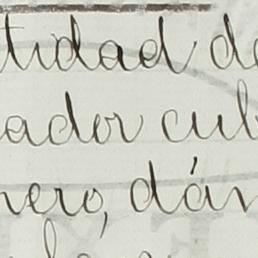 tidad de
ador cub
nero, dán